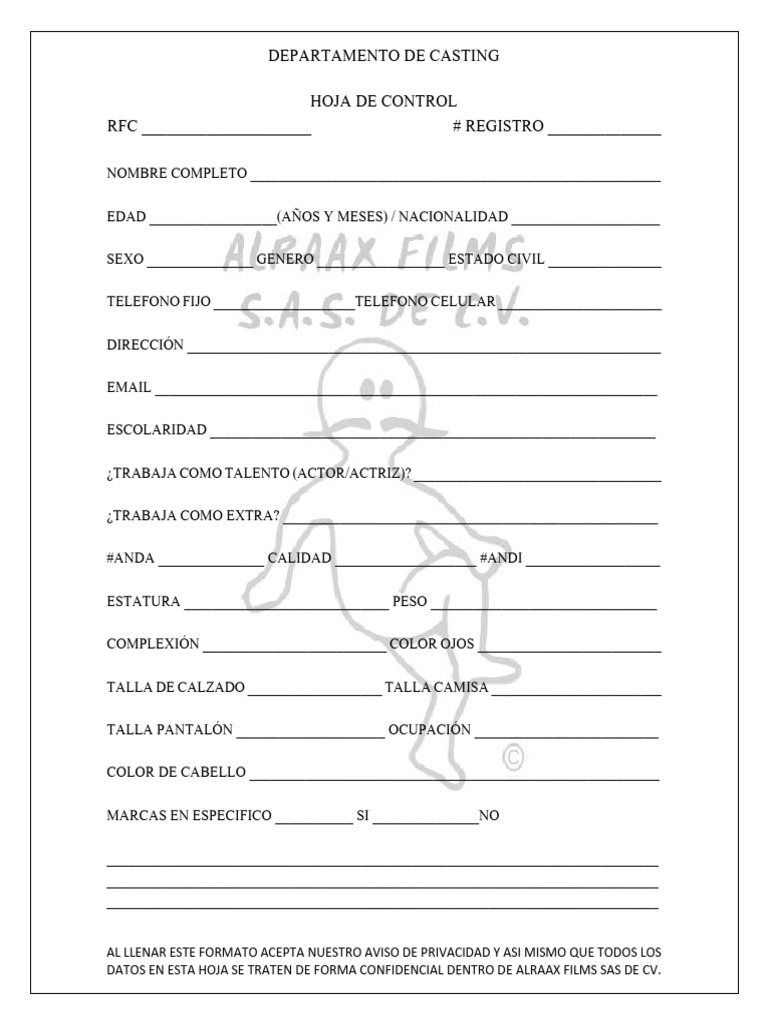 DEPARTAMENTO DE CASTING
HOJA DE CONTROL
RFC ____________________ # REGISTRO ______________
NOMBRE COMPLETO ____________________
EDAD __________________(AÑOS Y MESES) / NACIONALIDAD ____________________
ALRAAX FILMS
SEXO _______________ GENERO __________________ ESTADO CIVIL ________________
S.A.S. DE C.V.
TELEFONO FIJO ____________________TELEFONO CELULAR ____________________
DIRECCIÓN ____________________
EMAIL ____________________
ESCOLARIDAD ____________________
¿TRABAJA COMO TALENTO (ACTOR/ACTRIZ)? ____________________
¿TRABAJA COMO EXTRA? ____________________
#ANDA _______________ CALIDAD ____________________ #ANDI ___________________
ESTATURA ____________________ PESO ____________________
COMPLEXIÓN ____________________ COLOR OJOS ____________________
TALLA DE CALZADO ___________________ TALLA CAMISA ____________________
TALLA PANTALÓN ____________________ OCUPACIÓN ____________________
©
COLOR DE CABELLO ____________________
MARCAS EN ESPECIFICO ___________ SI _______________NO
AL LLENAR ESTE FORMATO ACEPTA NUESTRO AVISO DE PRIVACIDAD Y ASI MISMO QUE TODOS LOS
DATOS EN ESTA HOJA SE TRATEN DE FORMA CONFIDENCIAL DENTRO DE ALRAAX FILMS SAS DE CV.